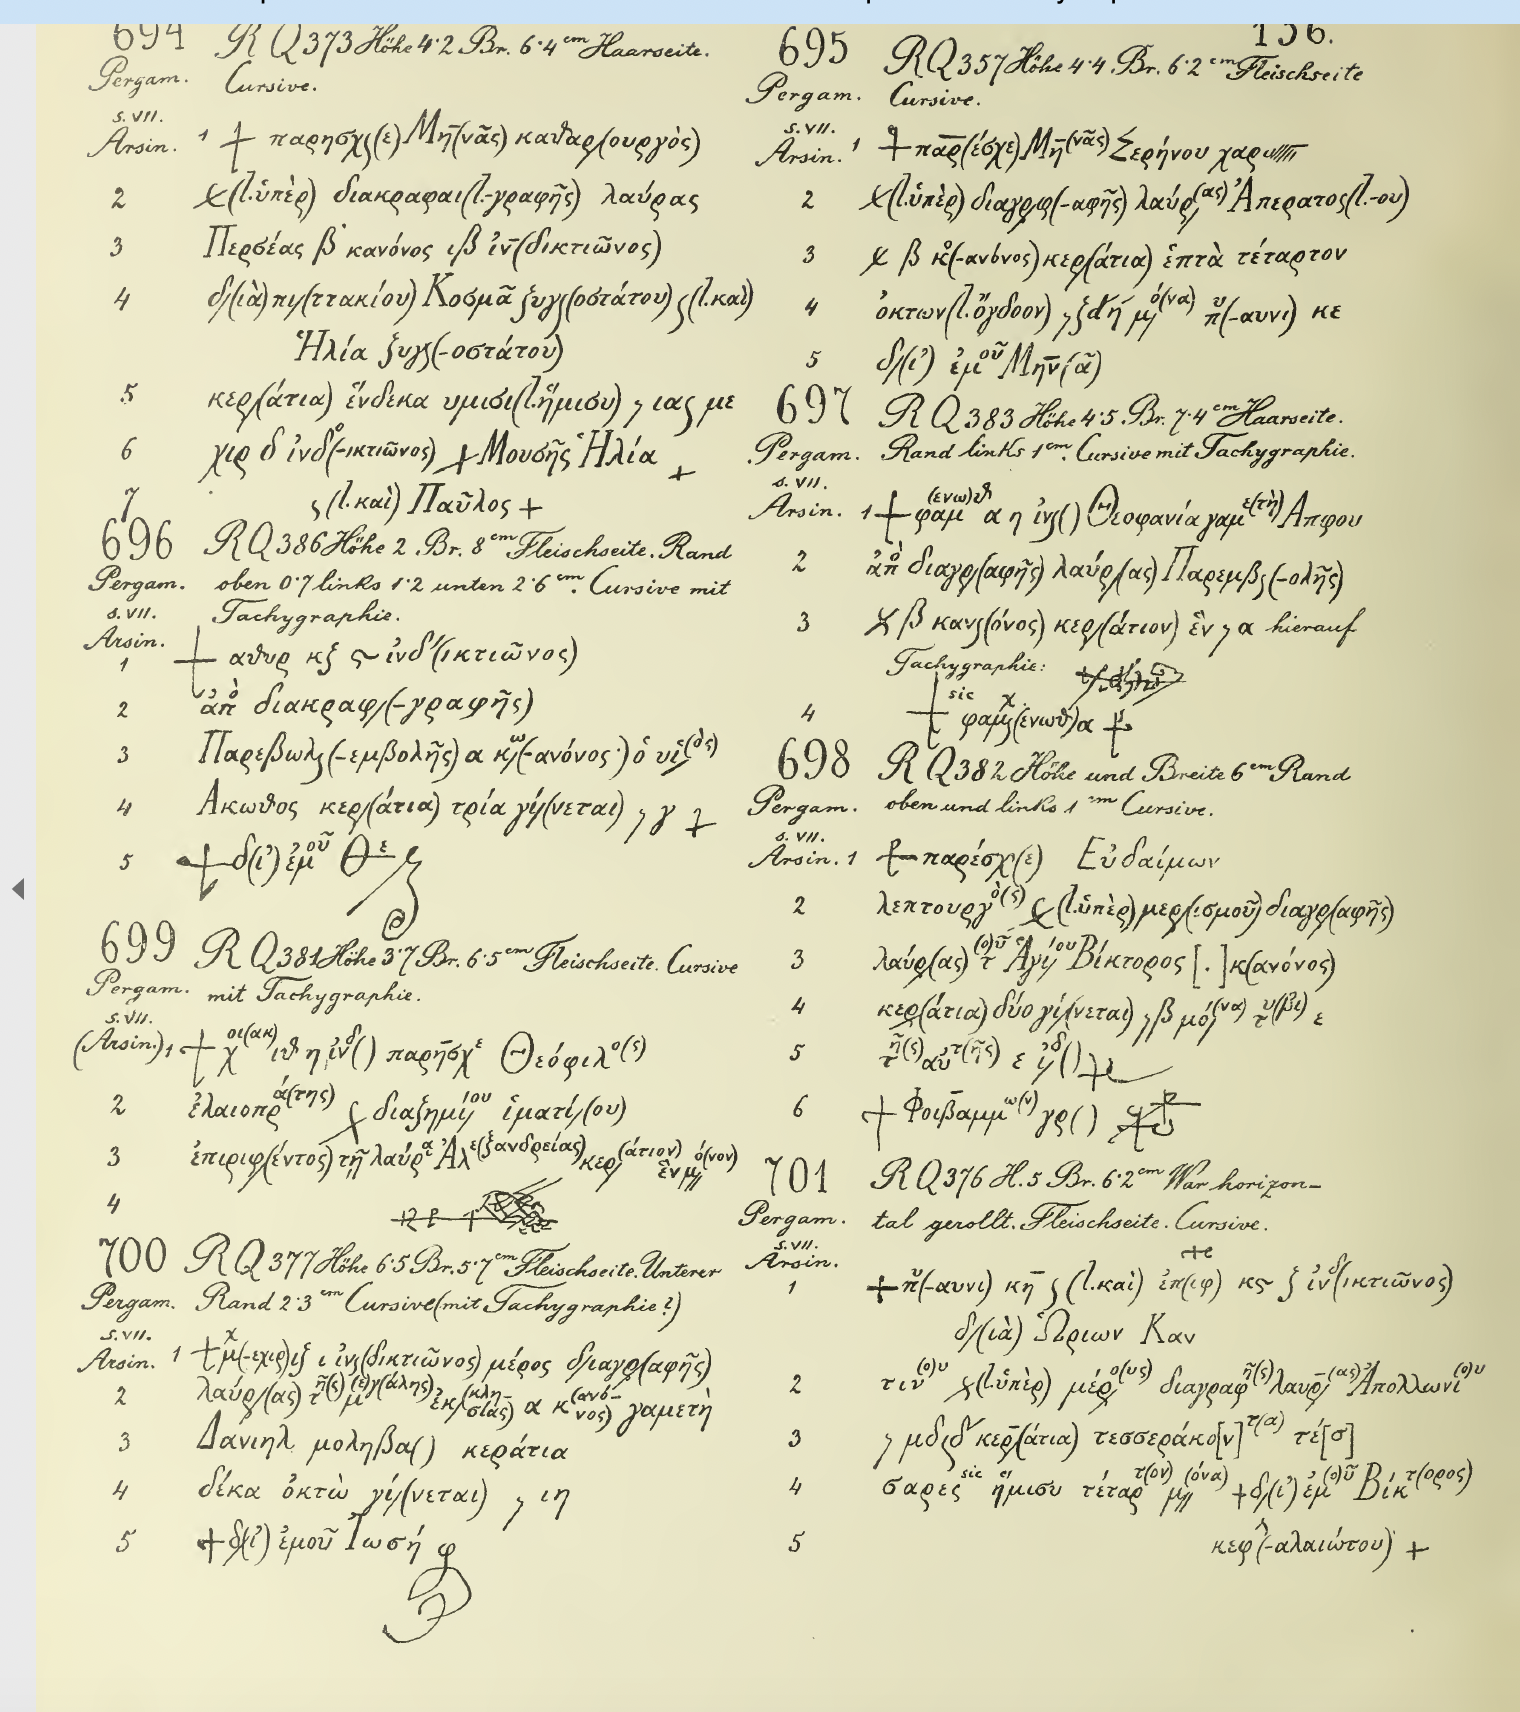 694 R Q 373 Höhe 4·2 Br. 6·4 cm Haarseite.
Pergam. Cursive.
s. VII.
Arsin. 1 + παρησχ(ε) Μη(νᾶς) καθαρ(ουργὸς)
2 (l. ὑπὲρ) διακραφαι (l. -γραφῆς) λαύρας
3 Περσέας β κανόνος ιβ ἰν(δικτιῶνος)
4 δ(ιὰ) πι(ττακίου) Κοσμᾶ ζυγ(οστάτου) ς (l. καὶ)
Ἠλία ζυγς(-οστάτου)
5 κερ(άτια) ἕνδεκα υμισι (l. ἥμισυ) ιας με
6 χιρ δ ἰνδ(-ικτιῶνος) + Μουσῆς Ἠλία +
7 ς (l. καὶ) Παῦλος +
696 R Q 386 Höhe 2. Br. 8 cm Fleischseite. Rand
Pergam. oben 0·7 links 1·2 unten 2·6 cm. Cursive mit
s. VII. Tachygraphie.
Arsin.
1 + αθυρ κξ ἰνδ(ικτιῶνος)
2 ἀπὸ διακραφ(-γραφῆς)
3 Παρεβωλς(-εμβολῆς) α κ(-ανόνος) ὁ υἱ(ὸς)
4 Ακωθος κερ(άτια) τρία γί(νεται) γ +
5 + δ(ι’) ἐμοῦ Θε
699 R Q 381 Höhe 3·7 Br. 6·5 cm Fleischseite. Cursive
Pergam. mit Tachygraphie.
s. VII.
(Arsin.) 1 + χοι(ακ) ιθ η ἰνδ( ) παρησχε Θεόφιλο(ς)
2 ἐλαιοπρά(της) διαζημίου ἱματί(ου)
3 ἐπιριφ(έντος) τῇ λαύρᾳ Ἀλε(ξανδρείας) κερ(άτιον) ἓν μό(νον)
4
700 R Q 377 Höhe 6·5 Br. 5·7 cm Fleischseite. Unterer
Pergam. Rand 2·3 cm Cursive (mit Tachygraphie?)
s. VII.
Arsin. 1 + μχ(-εχιρ) ιξ ι ἰνς(δικτιῶνος) μέρος διαγρ(αφῆς)
2 λαύρ(ας) τῆ(ς) μ(ε)γ(άλης) ἐκ(κλησίας) α κ(ανόνος) γαμετὴ
3 Δανιηλ μοληβα( ) κεράτια
4 δέκα ὀκτὼ γί(νεται) ιη
5 + δ(ι’) ἐμοῦ Ἰωσήφ
156.
695 R Q 357 Höhe 4·4. Br. 6·2 cm Fleischseite
Pergam. Cursive.
s. VII.
Arsin. 1 + παρ(έσχε) Μη(νᾶς) Σερήνου χαρ
2 (l. ὑπὲρ) διαγρφ(-αφῆς) λαύρ(ας) Ἀπερατος (l. -ου)
3 β κ(-ανόνος) κερ(άτια) ἑπτὰ τέταρτον
4 ὀκτων (l. ὄγδοον) ζδή μό(να) π(-αυνι) κε
5 δ(ι’) ἐμοῦ Μην(ᾶ)
697 R Q 383 Höhe 4·5. Br. 7·4 cm Haarseite.
Pergam. Rand links 1 cm. Cursive mit Tachygraphie.
s. VII.
Arsin. 1 + φαμ(ενω)θ α η ἰνς( ) Θεοφανία γαμε(τὴ) Απφου
2 ἀπὸ διαγρ(αφῆς) λαύρ(ας) Παρεμβς(-ολῆς)
3 β κανς(όνος) κερ(άτιον) ἓν α hierauf
Tachygraphie:
4 + sic φαμς(ενωθ) α
698 R Q 382 Höhe und Breite 6 cm Rand
Pergam. oben und links 1 cm Cursive.
s. VII.
Arsin. 1 + παρέσχ(ε) Εὐδαίμων
2 λεπτουργὸ(ς) (l. ὑπὲρ) μερ(ισμοῦ) διαγρ(αφῆς)
3 λαύρ(ας) τ(ο)ῦ Ἁγίου Βίκτορος [.] κ(ανόνος)
4 κερ(άτια) δύο γί(νεται) β μό(να) τυ(βι) ε
5 τῆ(ς) αὐτ(ῆς) ε ἰνδ( )
6 + Φοιβαμμω(ν) γρ( )
701 R Q 376 H. 5 Br. 6·2 cm War horizon-
Pergam. tal gerollt. Fleischseite. Cursive.
s. VII.
Arsin.
1 + π(-αυνι) κη ς (l. καὶ) ἐπ(ιφ) κς ξ ἰνδ(ικτιῶνος)
δ(ιὰ) Ὡριων Καν
2 τιν(ο)υ (l. ὑπὲρ) μέρο(υς) διαγραφῆ(ς) λαυρ(ας) Ἀπολλωνί(ο)υ
3 μδ κερ(άτια) τεσσεράκο[ν]τ(α) τέ[σ]
4 σαρες sic ἥμισυ τέταρτ(ον) μ(όνα) + δ(ι’) ἐμ(ο)ῦ Βίκτ(ορος)
5 κεφ(-αλαιώτου) +